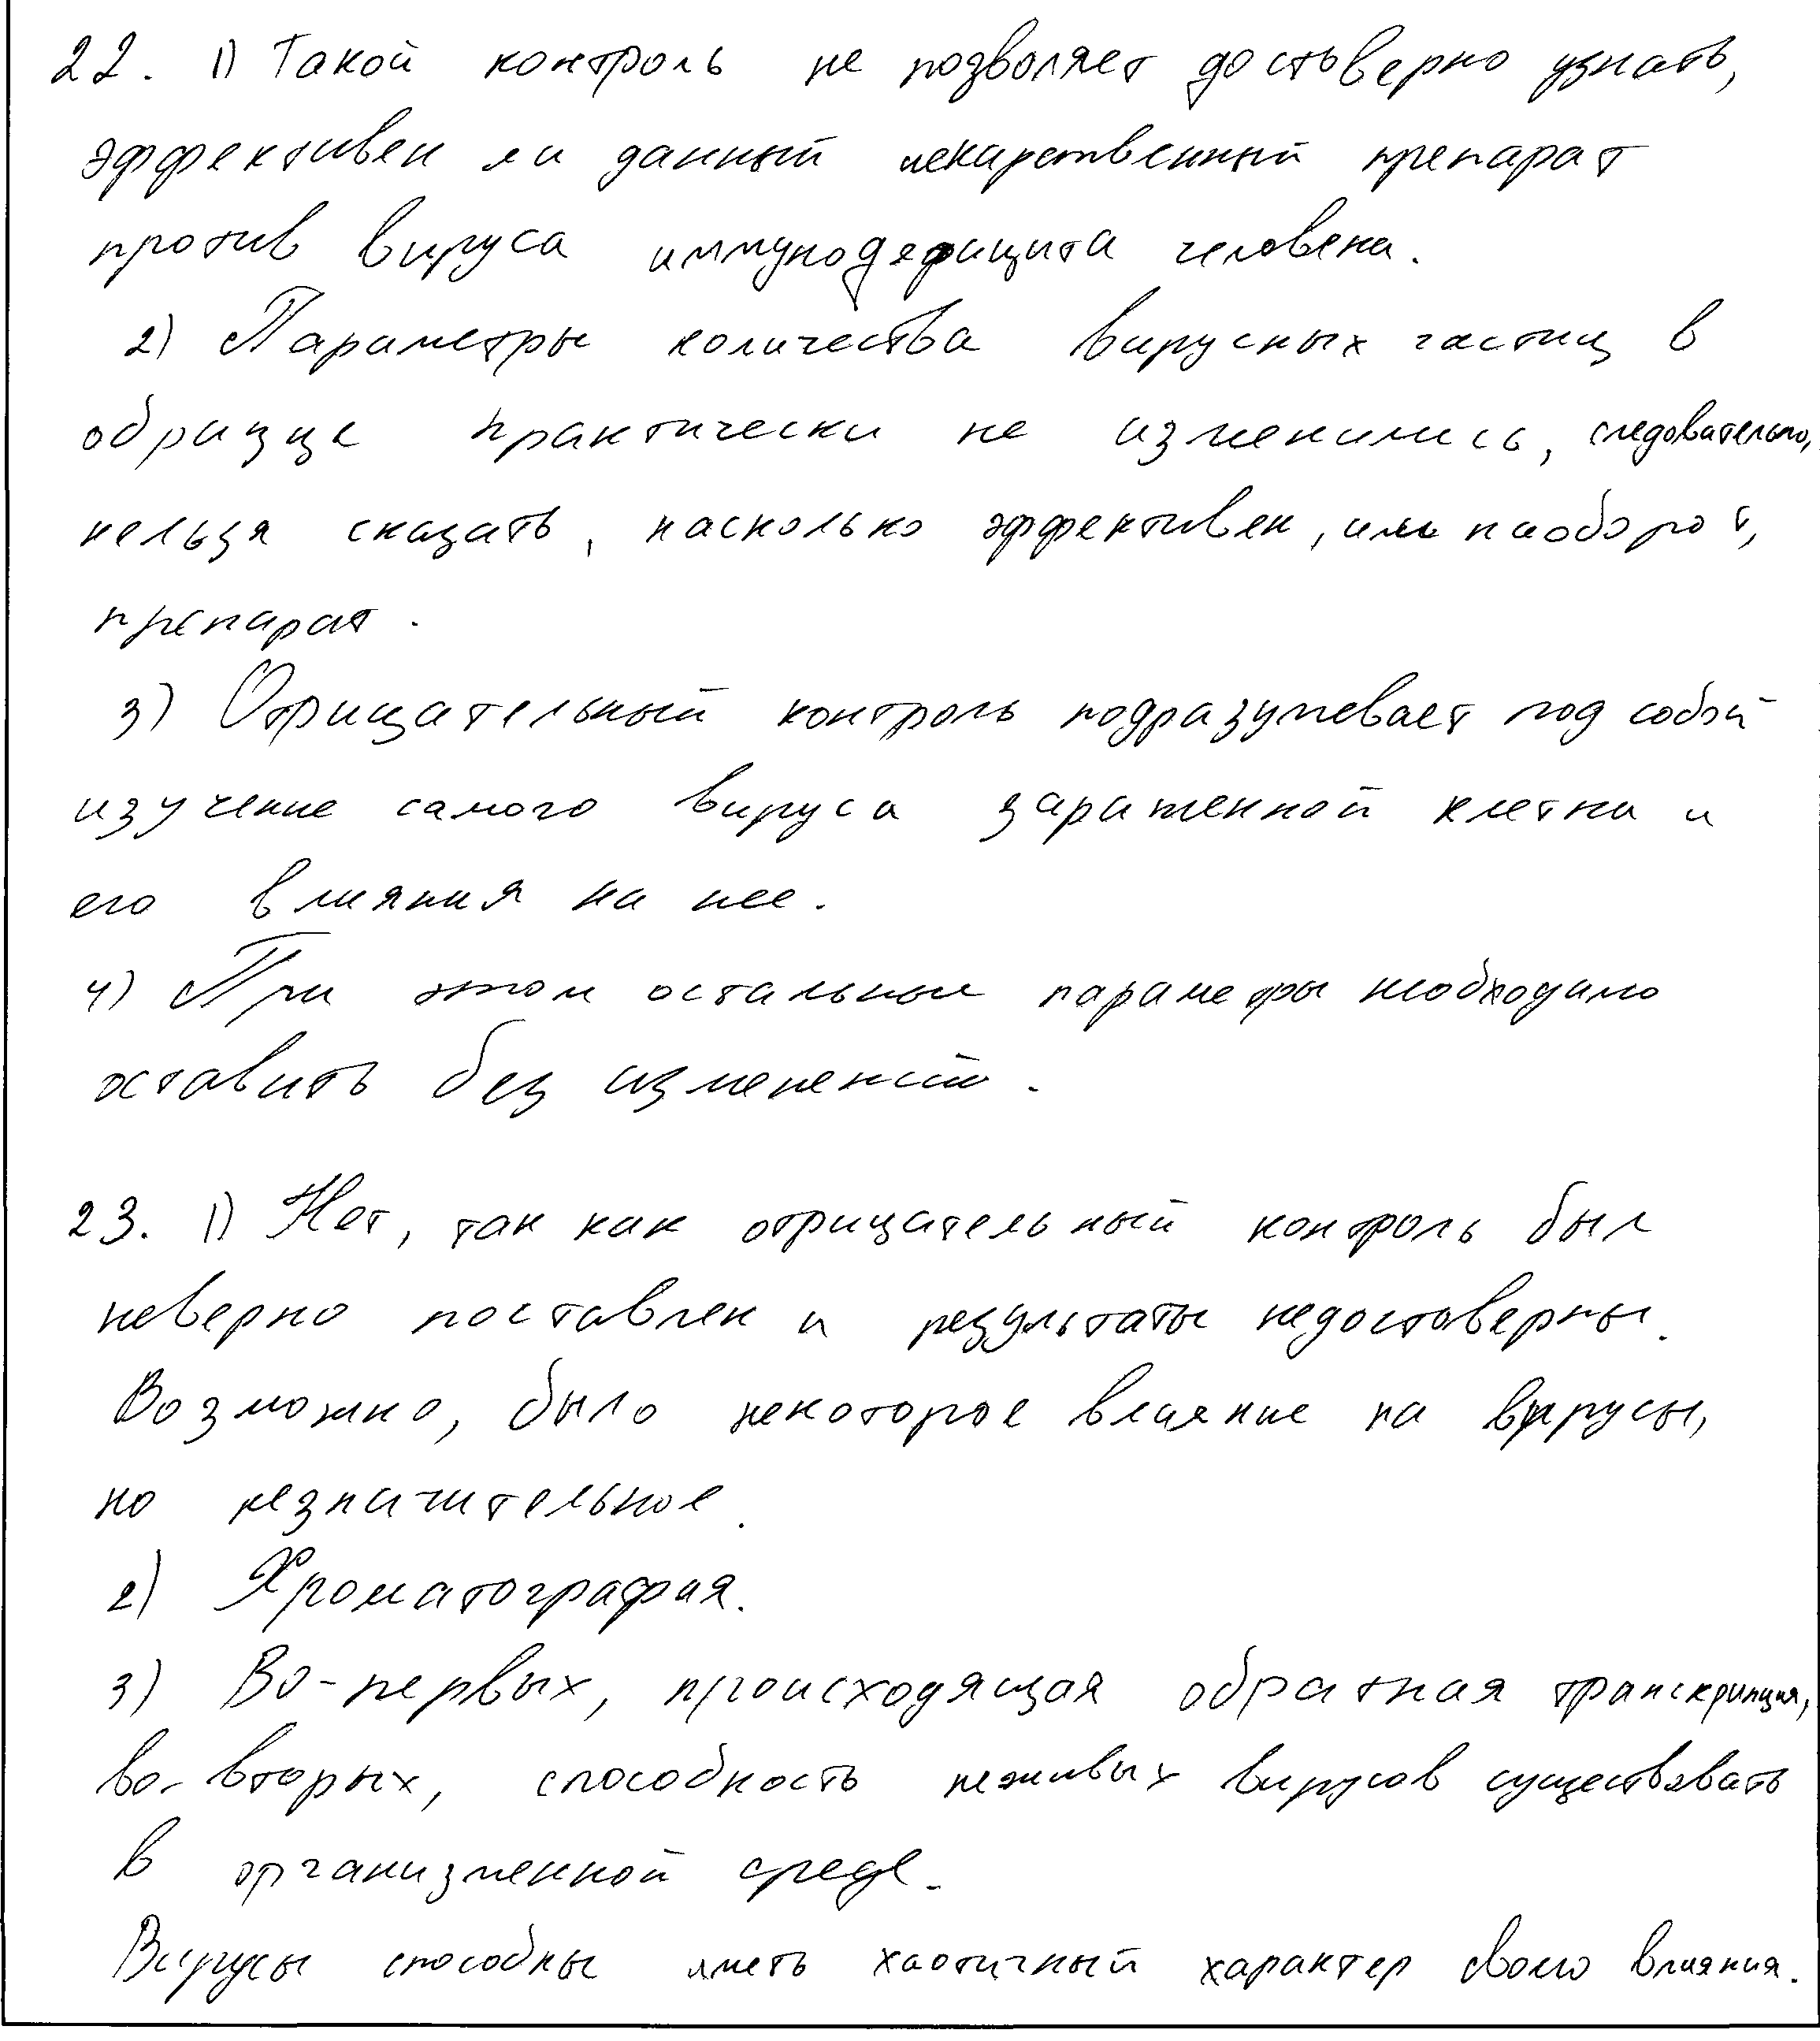 22. 1) Такой контроль не позволяет достоверно узнать,
эффективен ли данный лекарственный препарат
против вируса иммунодефицита человека.
2) Параметры количества вирусных частиц в
образце практически не изменились, следовательно,
нельзя сказать, насколько эффективен, или наоборот,
препарат.
3) Отрицательный контроль подразумевает под собой
изучение самого вируса зараженной клетки и
его влияния на нее.
4) При этом остальные параметры необходимо
оставить без изменений.
23. 1) Нет, так как отрицательный контроль был
неверно поставлен и результаты недостоверны.
Возможно, было некоторое влияние на вирусы,
но незначительное.
2) Хроматография.
3) Во-первых, происходящая обратная транскрипция,
во-вторых, способность неживых вирусов существовать
в организменной среде.
Вирусы способны иметь хаотичный характер своего влияния.